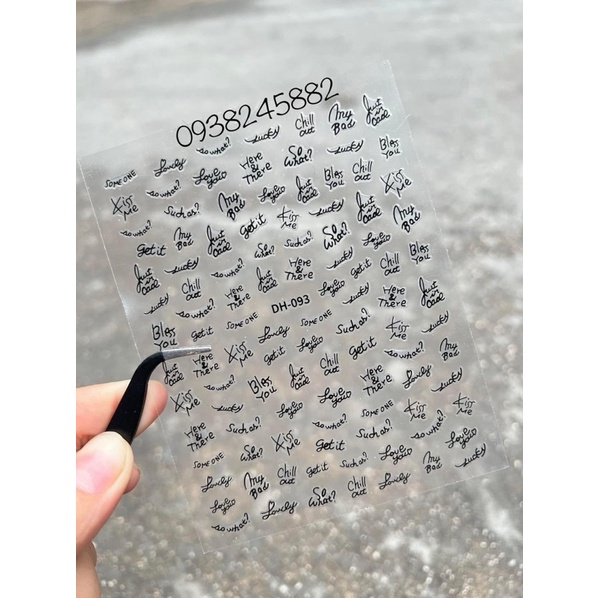 0938245882
SOMEONE Lovely so what? Lucky Chill out My Bad Just in case
Kiss Me so what? Love you Here & There So What? Lucky Bless You
so what? Such as? My Bad Love you Just in case Bless You Chill out Kiss Me
Get it My Bad Just in case Get it Kiss Me Lucky Just in case My Bad
Just in case Lucky so what? So What? Such as? So What? Love you Bless You
Lucky Chill out Here & There Just in case Here & There Love you Get it Chill out
Bless You so what? SOMEONE DH-093 Lucky Here & There Just in case
Just in case Get it Kiss Me Lovely SOMEONE Such as? Kiss Me Lucky
Here & There Get it Love you Get it so what? My Bad
Kiss Me Lucky Bless You Just in case Chill out Here & There Lovely
Here & There Such as? Love you Love you SOMEONE Kiss Me Lucky
SOMEONE So What? Kiss Me Get it Such as? so what? Kiss Me
Lovely My Bad Chill out Get it Such as? Love you Love you
Love you so what? Lovely So What? Chill out Lovely My Bad Lucky